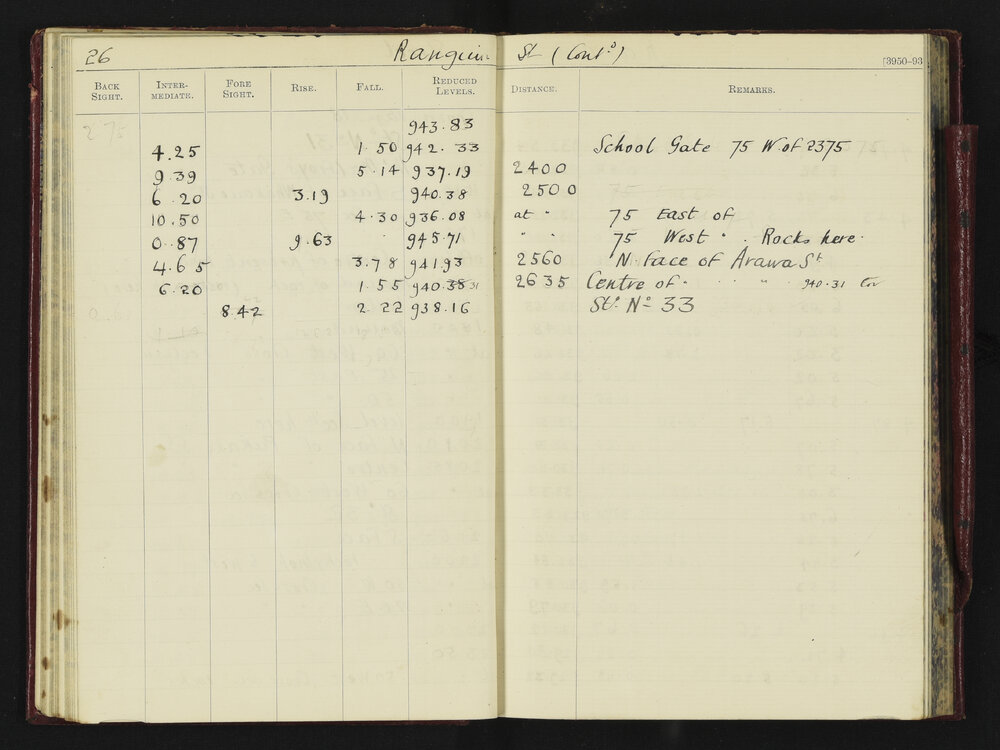 26 Ranguiu St (Contd)
[3950-93
BACK SIGHT. INTER-MEDIATE. FORE SIGHT. RISE. FALL. REDUCED LEVELS. DISTANCE. REMARKS.
2.75 943.83
4.25 1.50 942.33 School Gate 75 W. of 2375
9.39 5.14 937.19 2400
6.20 3.19 940.38 2500
10.50 4.30 936.08 at " 75 East of
0.87 9.63 945.71 " " 75 West " . Rocks here.
4.65 3.78 941.93 2560 N. face of Arawa St
6.20 1.55 940.38 31 2635 Centre of " " 940.31 Cor
8.42 2.22 938.16 Stn No 33